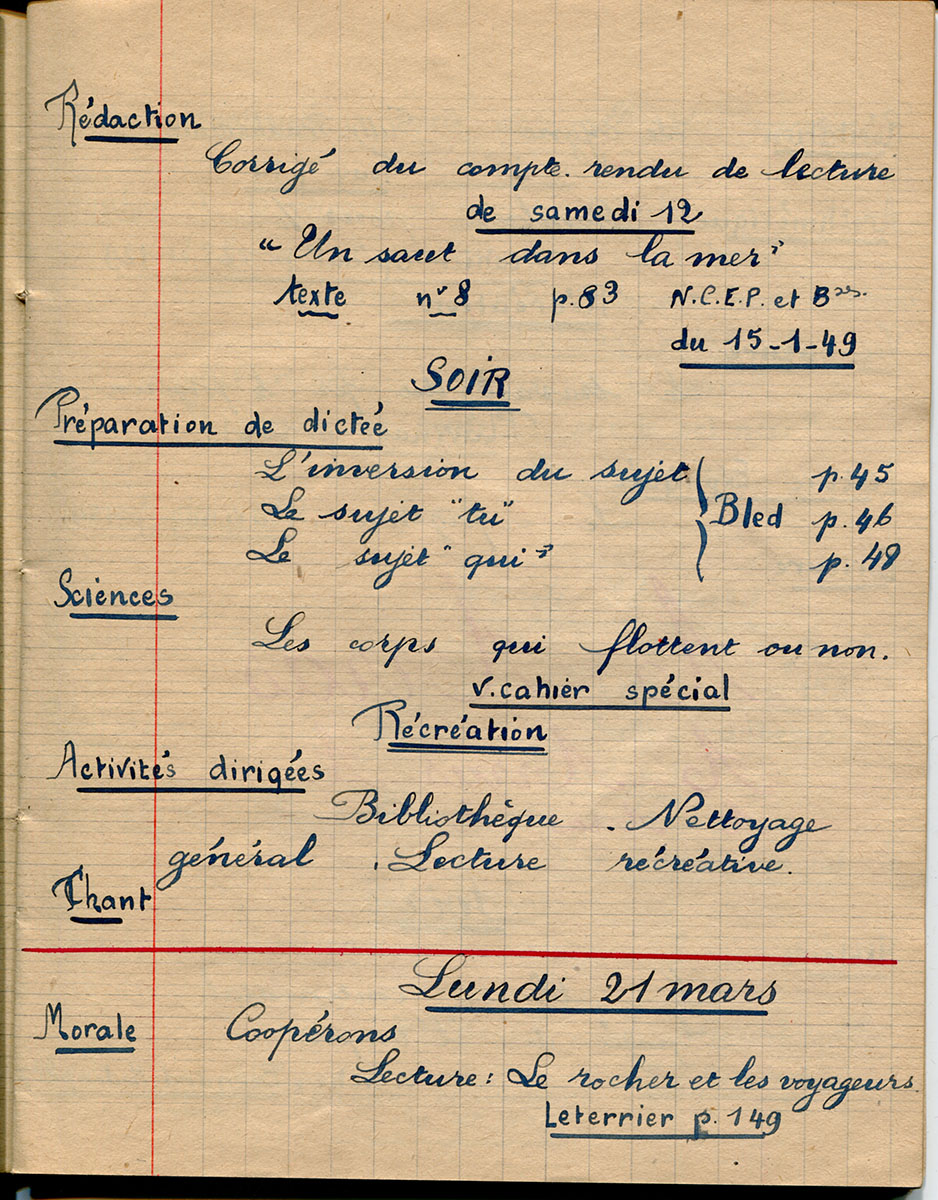 Rédaction
Corrigé du compte. rendu de lecture
de samedi 12
"Un saut dans la mer"
texte n° 8 p.83 N.C.E.P. et Bres.
du 15-1-49
SOIR
Préparation de dictée
L'inversion du sujet p.45
Le sujet "tu" Bled p.46
Le sujet "qui" p.48
Sciences
Les corps qui flottent ou non.
v. cahier spécial
Récréation
Activités dirigées
Bibliothèque . Nettoyage
général . Lecture récréative.
Chant
Lundi 21 mars
Morale Coopérons
Lecture : Le rocher et les voyageurs
Leterrier p. 149